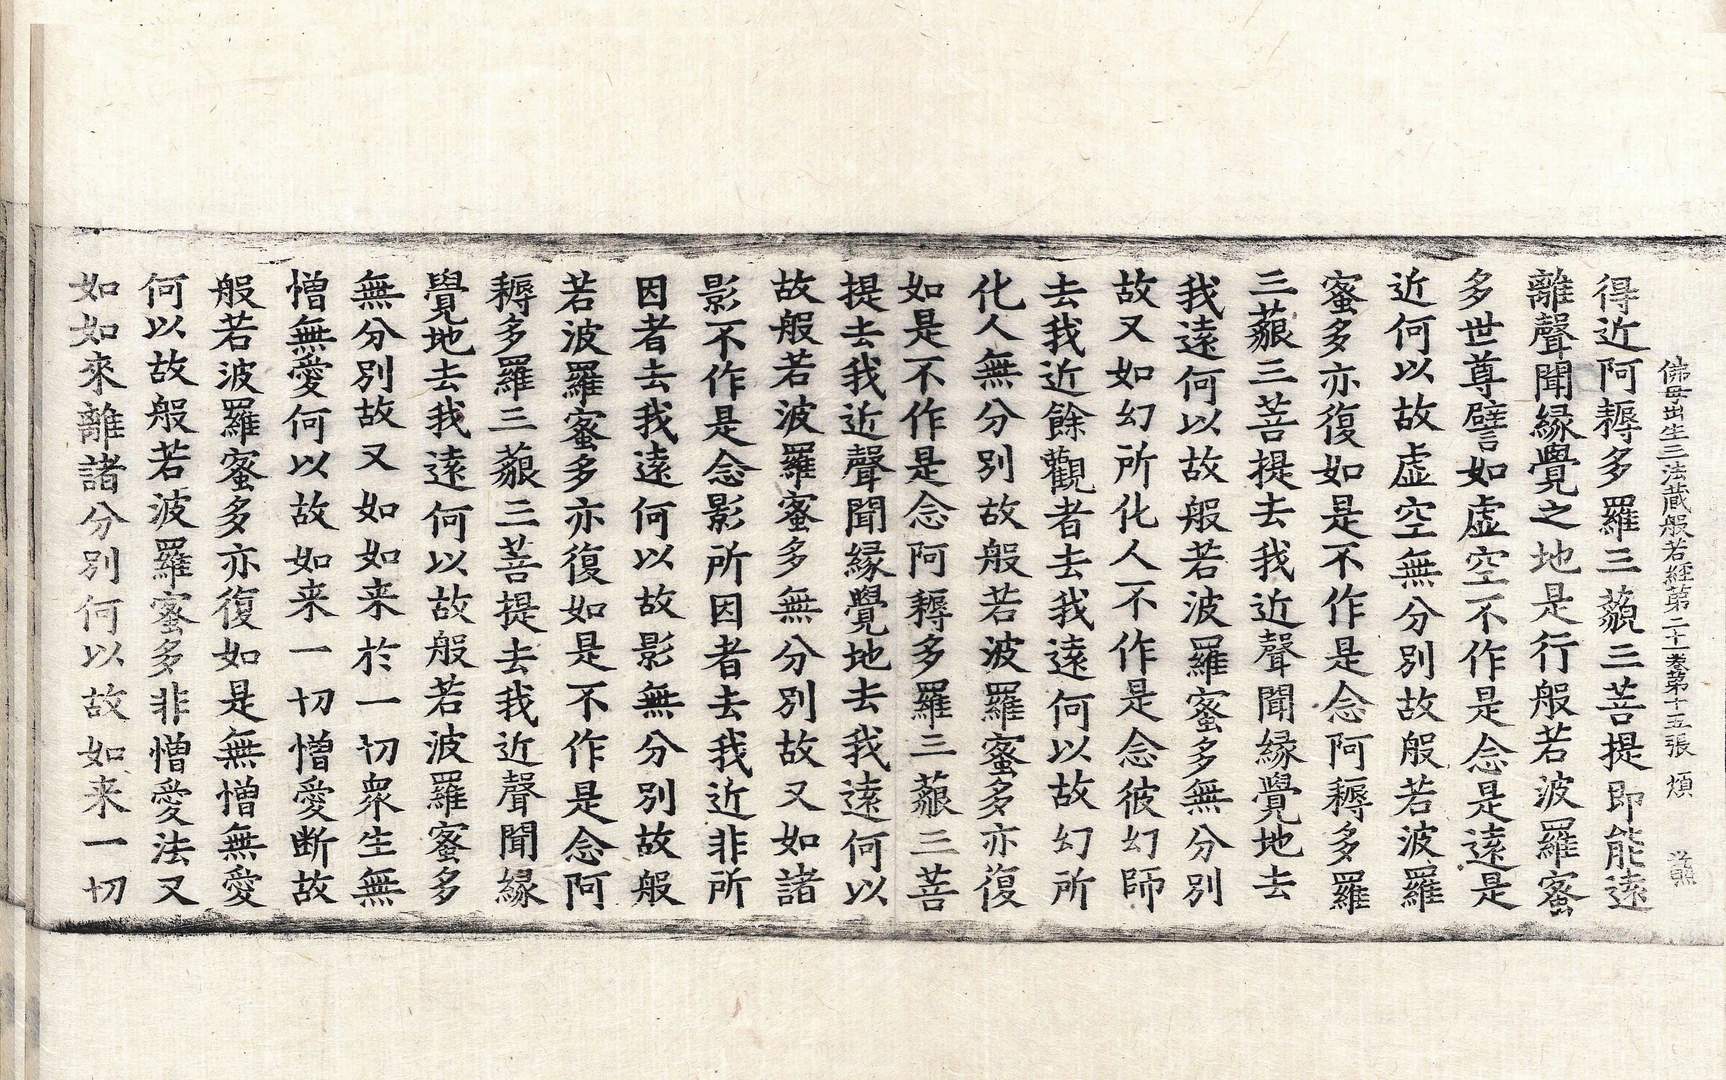 佛母出生三法藏般若經第二十一卷第十五張 煩
得近阿耨多羅三藐三菩提即能遠
離聲聞緣覺之地是行般若波羅蜜
多世尊譬如虛空不作是念是遠是
近何以故虛空無分別故般若波羅
蜜多亦復如是不作是念阿耨多羅
三藐三菩提去我近聲聞緣覺地去
我遠何以故般若波羅蜜多無分別
故又如幻所化人不作是念彼幻師
去我近餘觀者去我遠何以故幻所
化人無分別故般若波羅蜜多亦復
如是不作是念阿耨多羅三藐三菩
提去我近聲聞緣覺地去我遠何以
故般若波羅蜜多無分別故又如諸
影不作是念影所因者去我近非所
因者去我遠何以故影無分別故般
若波羅蜜多亦復如是不作是念阿
耨多羅三藐三菩提去我近聲聞緣
覺地去我遠何以故般若波羅蜜多
無分別故又如如来於一切衆生無
憎無愛何以故如来一切憎愛断故
般若波羅蜜多亦復如是無憎無愛
何以故般若波羅蜜多非憎愛法又
如如來離諸分別何以故如来一切